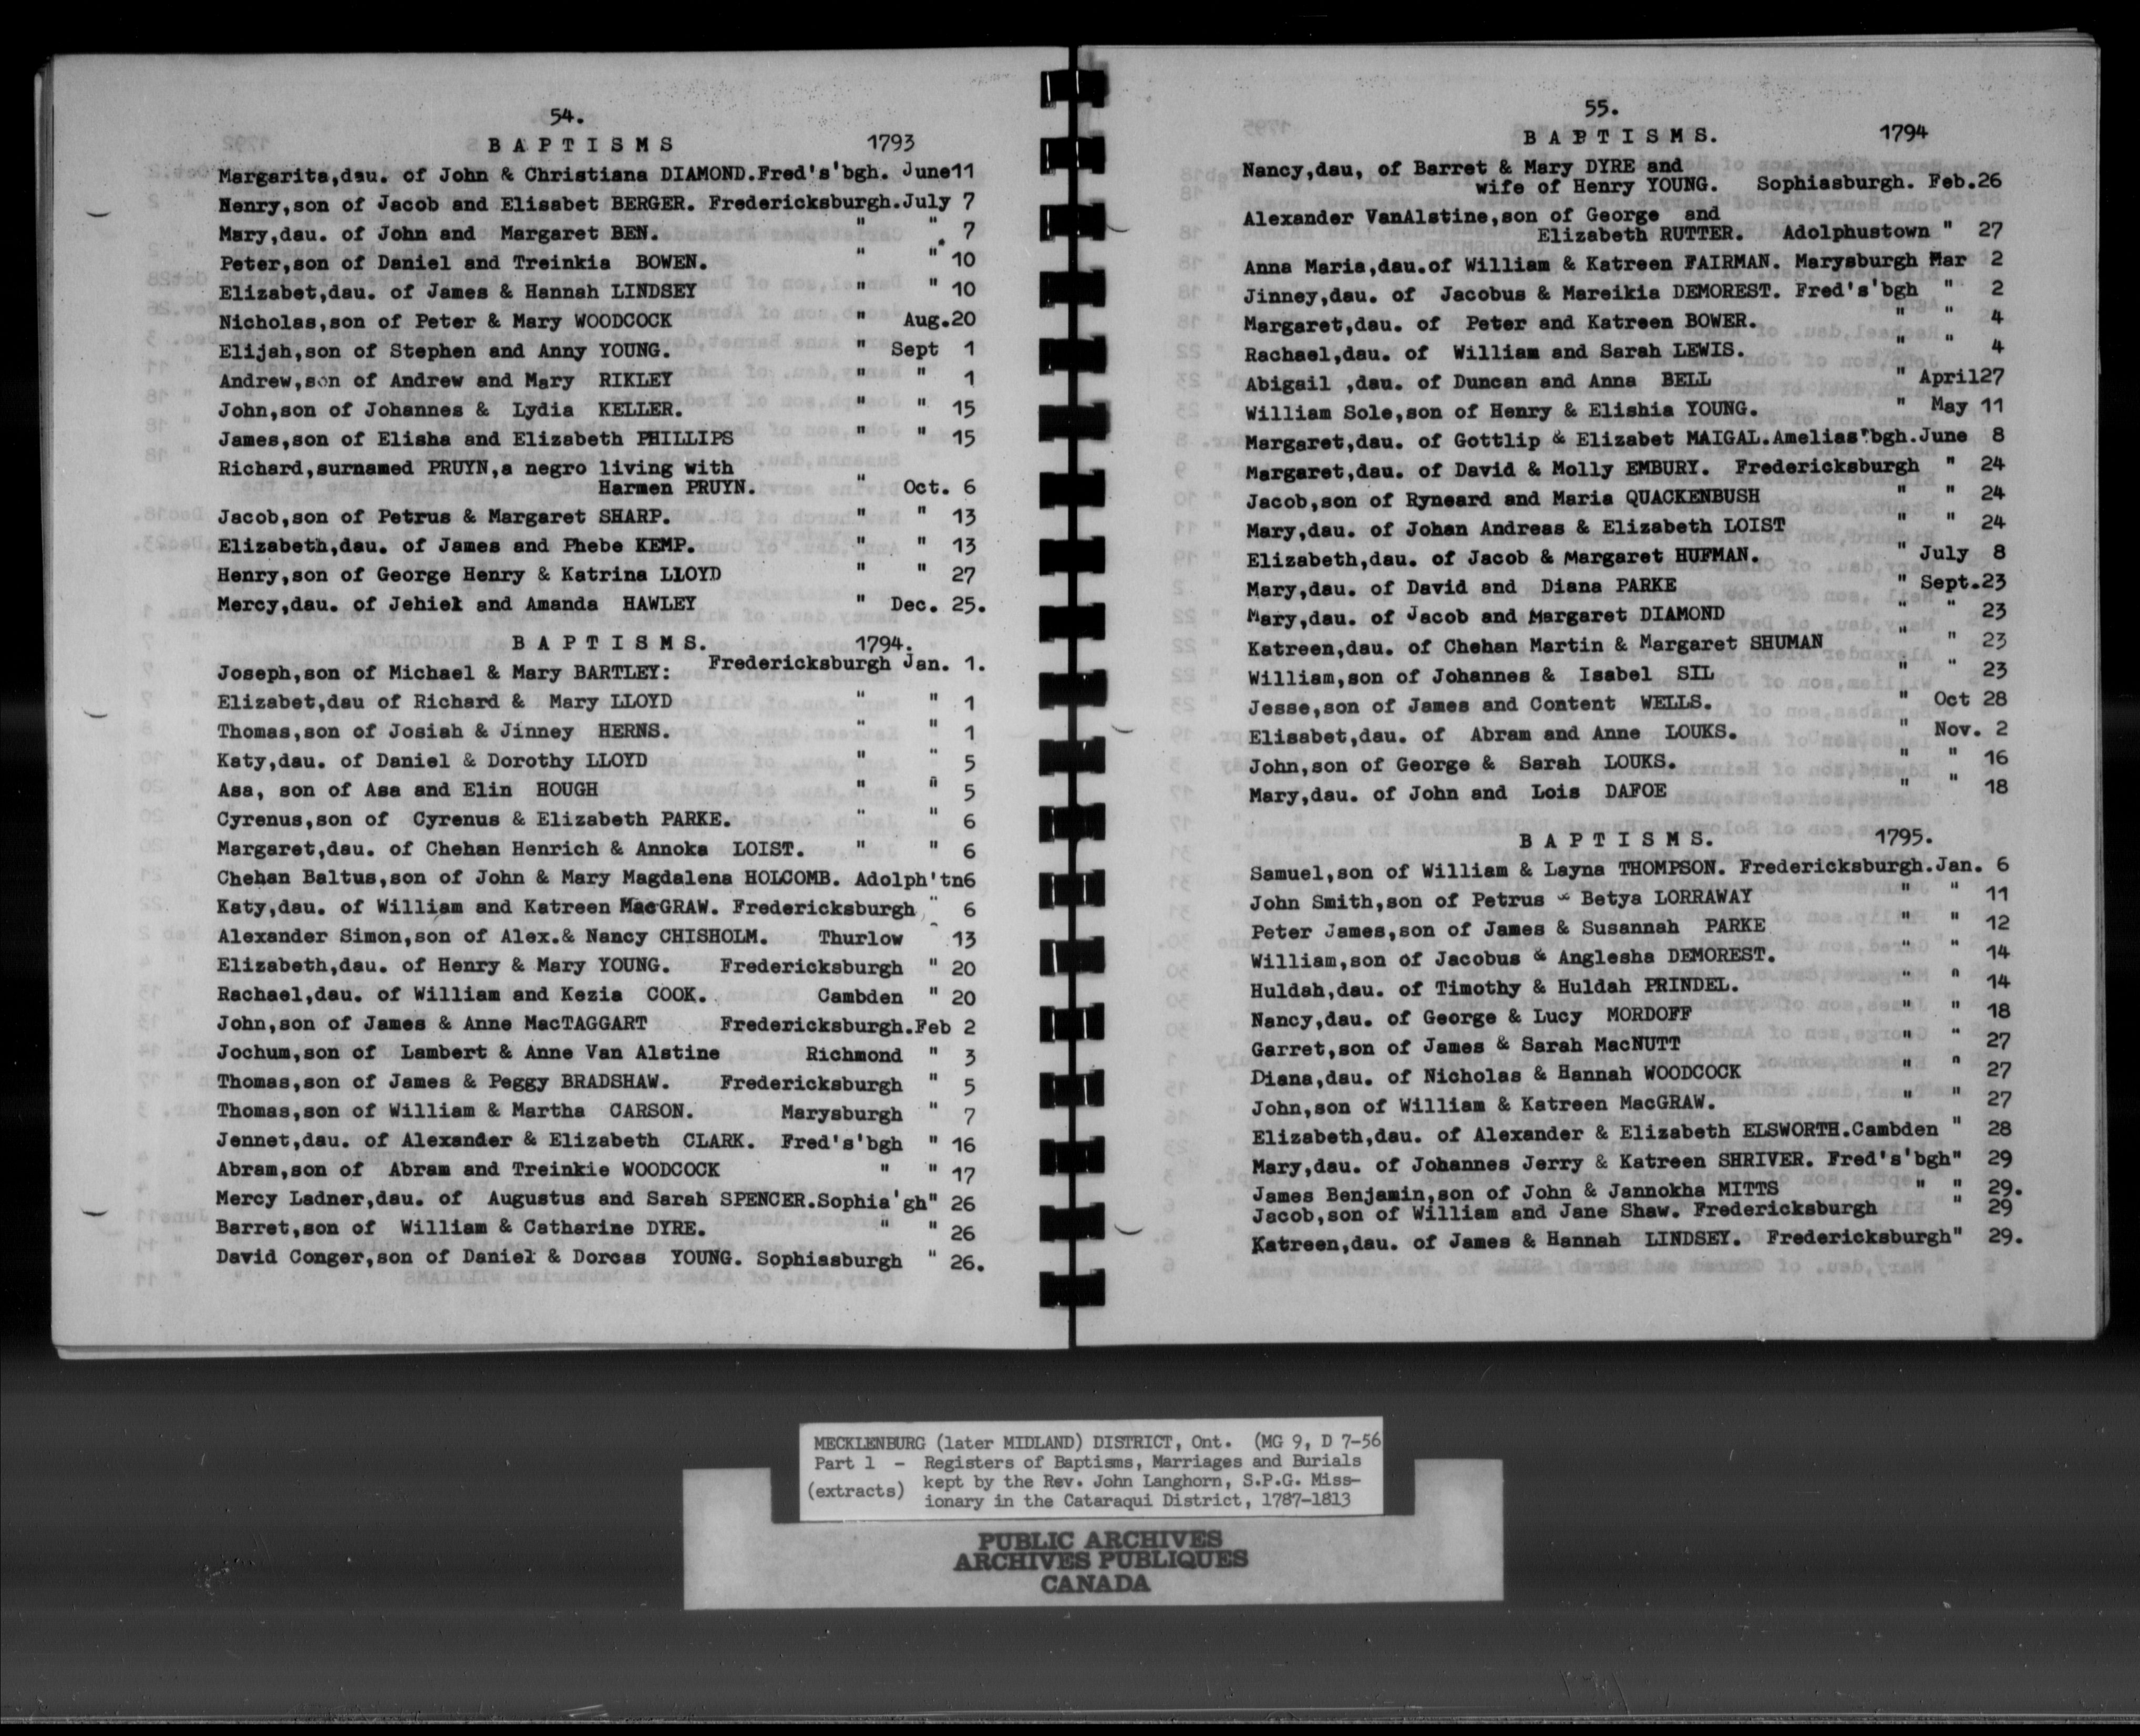 54.
B A P T I S M S 1793
Margarita,dau. of John & Christiana DIAMOND.Fred's'bgh. June11
Henry,son of Jacob and Elisabet BERGER. Fredericksburgh.July 7
Mary,dau. of John and Margaret BEN. " " 7
Peter,son of Daniel and Treinkia BOWEN. " " 10
Elizabet,dau. of James & Hannah LINDSEY " " 10
Nicholas,son of Peter & Mary WOODCOCK " Aug.20
Elijah,son of Stephen and Anny YOUNG. " Sept 1
Andrew,son of Andrew and Mary RIKLEY " " 1
John,son of Johannes & Lydia KELLER. " " 15
James,son of Elisha and Elizabeth PHILLIPS " " 15
Richard,surnamed PRUYN,a negro living with
Harmen PRUYN. " Oct. 6
Jacob,son of Petrus & Margaret SHARP. " " 13
Elizabeth,dau. of James and Phebe KEMP. " " 13
Henry,son of George Henry & Katrina LLOYD " " 27
Mercy,dau. of Jehiel and Amanda HAWLEY " Dec. 25.
B A P T I S M S. 1794.
Joseph,son of Michael & Mary BARTLEY: Fredericksburgh Jan. 1.
Elizabet,dau of Richard & Mary LLOYD " " 1
Thomas,son of Josiah & Jinney HERNS. " " 1
Katy,dau. of Daniel & Dorothy LLOYD " " 5
Asa, son of Asa and Elin HOUGH " " 5
Cyrenus,son of Cyrenus & Elizabeth PARKE. " " 6
Margaret,dau. of Chehan Henrich & Annoka LOIST. " " 6
Chehan Baltus,son of John & Mary Magdalena HOLCOMB. Adolph'tn6
Katy,dau. of William and Katreen MacGRAW. Fredericksburgh " 6
Alexander Simon,son of Alex.& Nancy CHISHOLM. Thurlow " 13
Elizabeth,dau. of Henry & Mary YOUNG. Fredericksburgh " 20
Rachael,dau. of William and Kezia COOK. Cambden " 20
John,son of James & Anne MacTAGGART Fredericksburgh.Feb 2
Jochum,son of Lambert & Anne Van Alstine Richmond " 3
Thomas,son of James & Peggy BRADSHAW. Fredericksburgh " 5
Thomas,son of William & Martha CARSON. Marysburgh " 7
Jennet,dau. of Alexander & Elizabeth CLARK. Fred's'bgh " 16
Abram,son of Abram and Treinkie WOODCOCK " " 17
Mercy Ladner,dau. of Augustus and Sarah SPENCER.Sophia'gh" 26
Barret,son of William & Catharine DYRE. " " 26
David Conger,son of Daniel & Dorcas YOUNG. Sophiasburgh " 26.
55.
B A P T I S M S. 1794
Nancy,dau, of Barret & Mary DYRE and
wife of Henry YOUNG. Sophiasburgh. Feb.26
Alexander VanAlstine,son of George and
Elizabeth RUTTER. Adolphustown " 27
Anna Maria,dau.of William & Katreen FAIRMAN. Marysburgh Mar 2
Jinney,dau. of Jacobus & Mareikia DEMOREST. Fred's'bgh " 2
Margaret,dau. of Peter and Katreen BOWER. " " 4
Rachael,dau. of William and Sarah LEWIS. " " 4
Abigail ,dau. of Duncan and Anna BELL " April27
William Sole,son of Henry & Elishia YOUNG. " May 11
Margaret,dau. of Gottlip & Elizabet MAIGAL.Amelias'bgh.June 8
Margaret,dau. of David & Molly EMBURY. Fredericksburgh " 24
Jacob,son of Ryneard and Maria QUACKENBUSH " " 24
Mary,dau. of Johan Andreas & Elizabeth LOIST " " 24
Elizabeth,dau. of Jacob & Margaret HUFMAN. " July 8
Mary,dau. of David and Diana PARKE " Sept.23
Mary,dau. of Jacob and Margaret DIAMOND " " 23
Katreen,dau. of Chehan Martin & Margaret SHUMAN " " 23
William,son of Johannes & Isabel SIL " " 23
Jesse,son of James and Content WELLS. " Oct 28
Elisabet,dau. of Abram and Anne LOUKS. " Nov. 2
John,son of George & Sarah LOUKS. " " 16
Mary,dau. of John and Lois DAFOE " " 18
B A P T I S M S. 1795.
Samuel,son of William & Layna THOMPSON. Fredericksburgh.Jan. 6
John Smith,son of Petrus & Betya LORRAWAY " " 11
Peter James,son of James & Susannah PARKE " " 12
William,son of Jacobus & Anglesha DEMOREST. " " 14
Huldah,dau. of Timothy & Huldah PRINDEL. " " 14
Nancy,dau. of George & Lucy MORDOFF " " 18
Garret,son of James & Sarah MacNUTT " " 27
Diana,dau. of Nicholas & Hannah WOODCOCK " " 27
John,son of William & Katreen MacGRAW. " " 27
Elizabeth,dau. of Alexander & Elizabeth ELSWORTH.Cambden " 28
Mary,dau. of Johannes Jerry & Katreen SHRIVER. Fred's'bgh" 29
James Benjamin,son of John & Jannokha MITTS " " 29.
Jacob,son of William and Jane Shaw. Fredericksburgh " 29
Katreen,dau. of James & Hannah LINDSEY. Fredericksburgh" 29.
MECKLENBURG (later MIDLAND) DISTRICT, Ont. (MG 9, D 7-56
Part 1 - Registers of Baptisms, Marriages and Burials
(extracts) kept by the Rev. John Langhorn, S.P.G. Miss-
ionary in the Cataraqui District, 1787-1813
PUBLIC ARCHIVES
ARCHIVES PUBLIQUES
CANADA